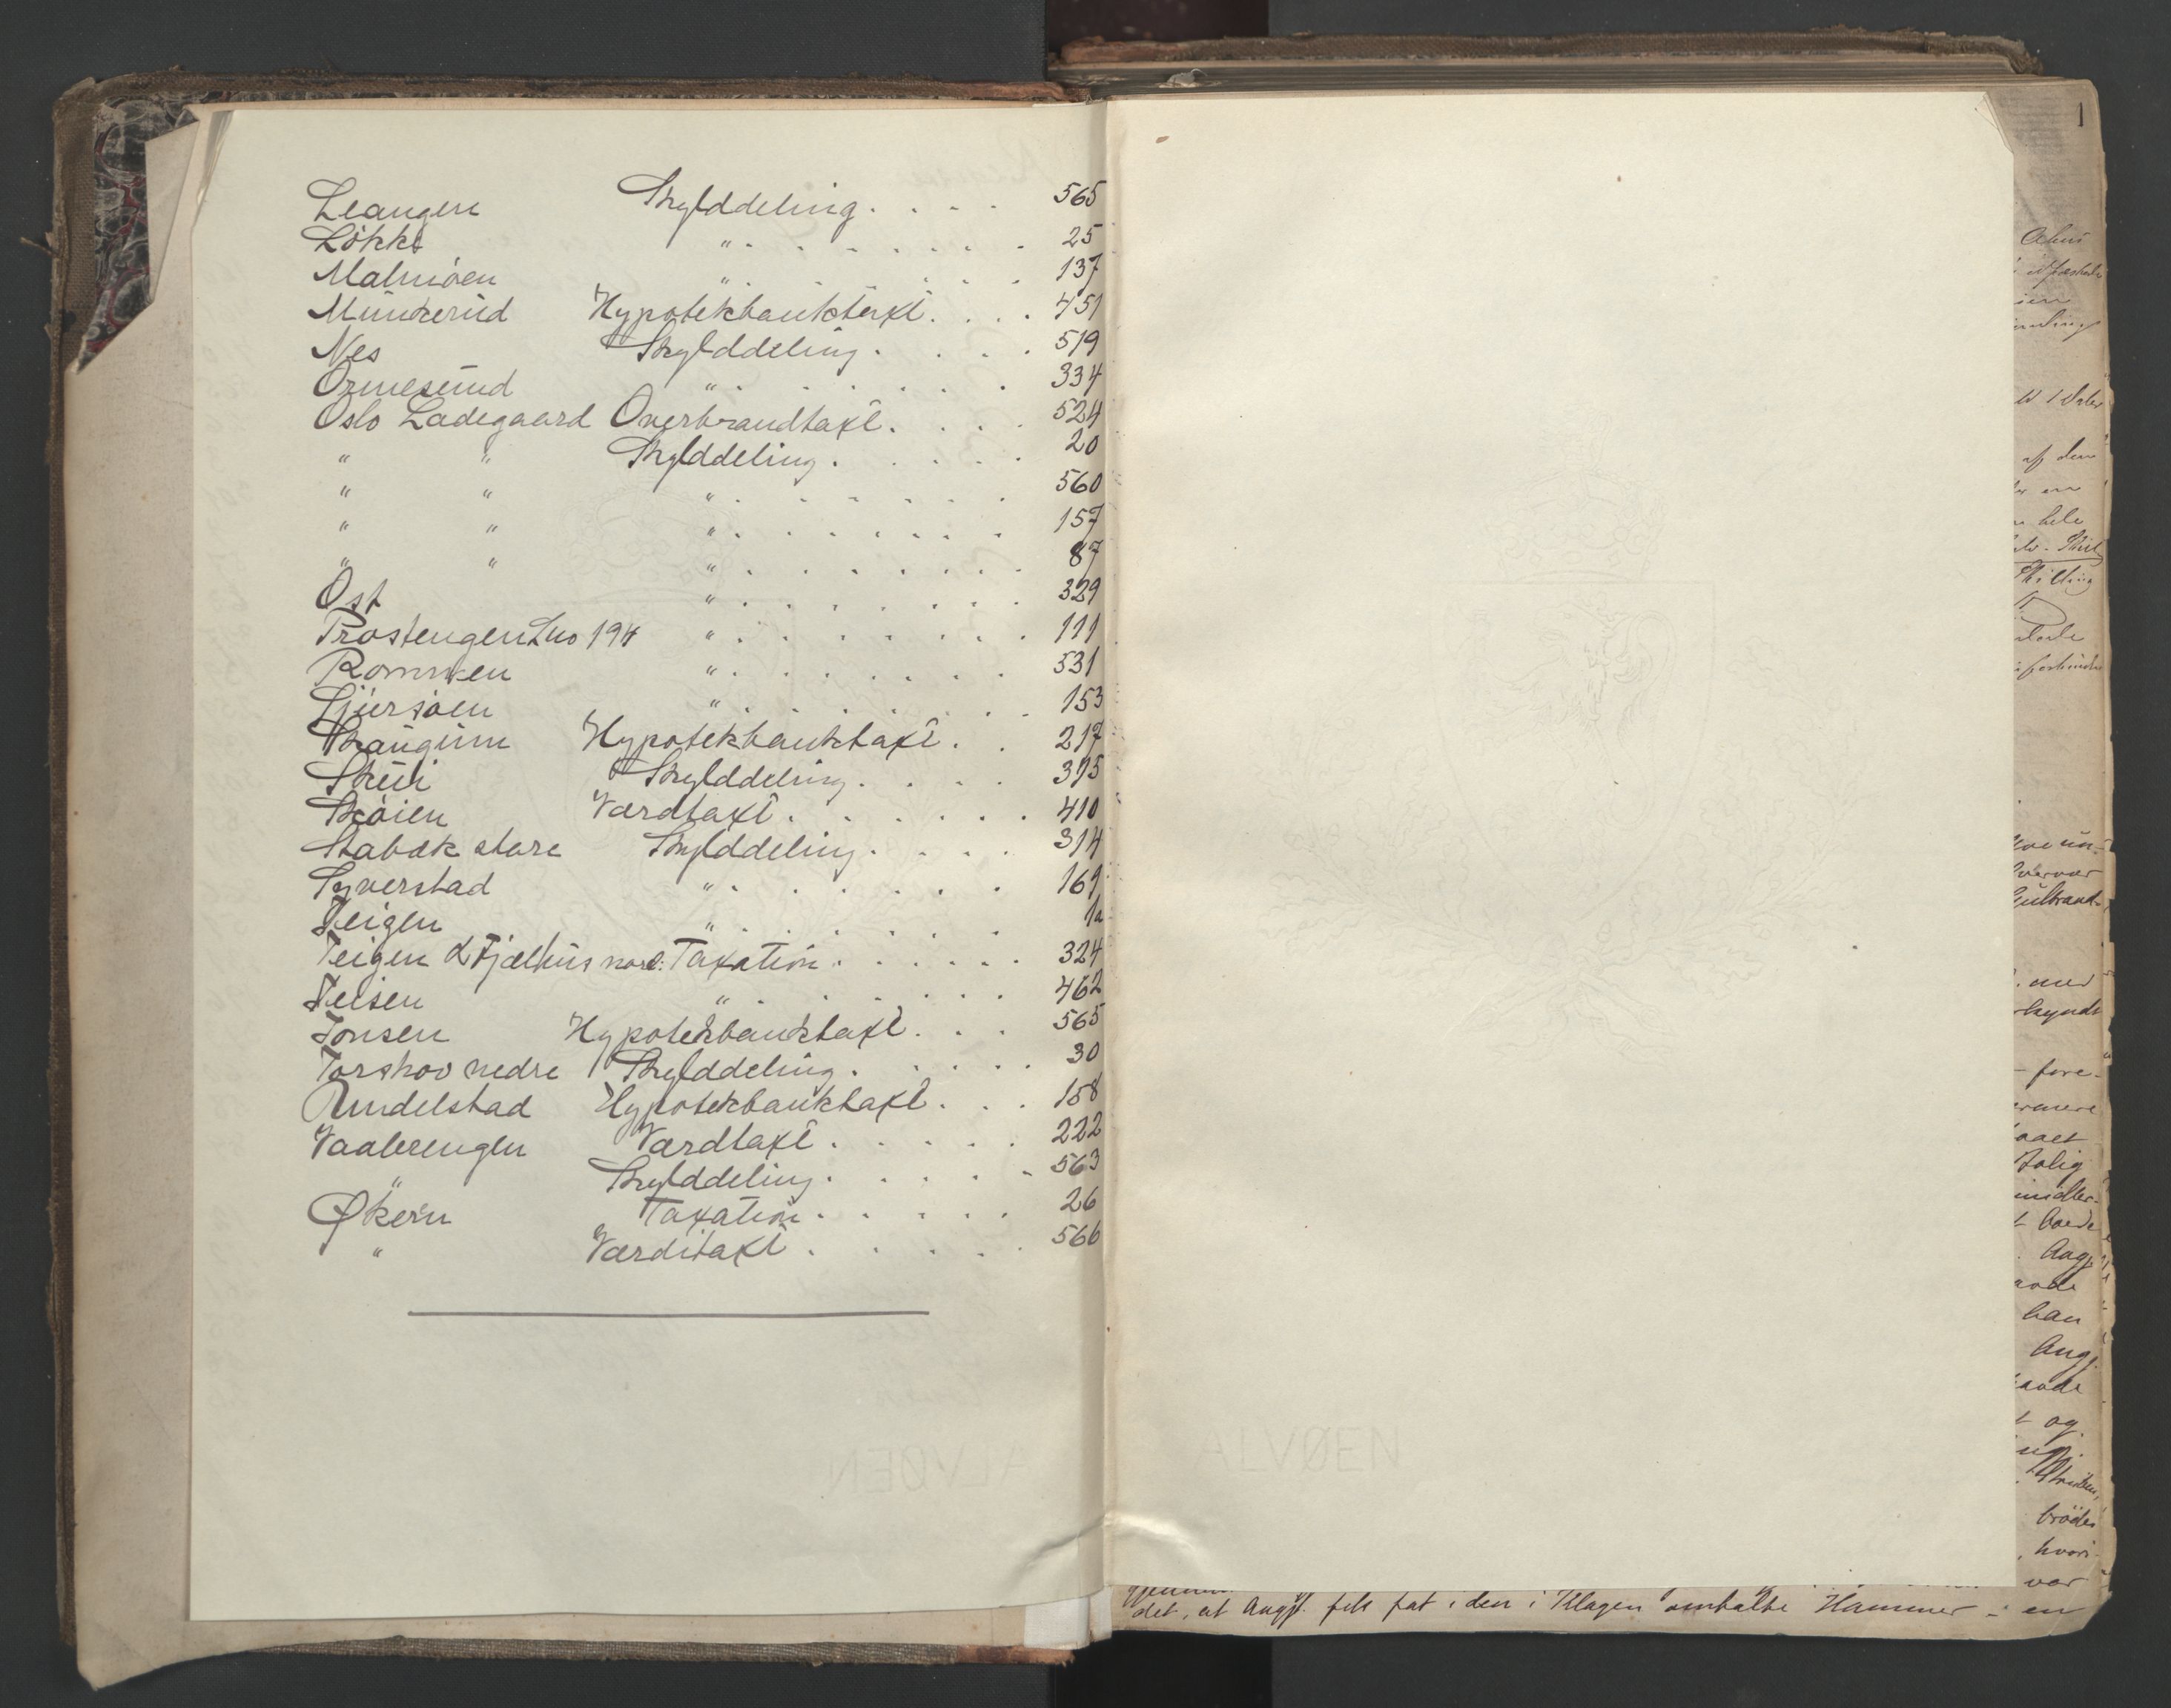 Leangen Skylddeling . . . . 565
Løkke " . . . . . . . . 25
Malmöen " . . . . . . . 137
Munkerud Hypotekbanktaxt . . . . 451
Nes Skylddeling . . . . . 519
Ormesund " . . . . . . . 334
Oslo Ladegaard Overbrandtaxt . . . . 524
" " Skylddeling . . . . . . 20
" " " . . . . . . . 560
" " " . . . . . . . 157
" " " . . . . . . . 87
Ost " . . . . . . . 329
Prostengen Lno 194 " . . . . . . . 111
Rommen " . . . . . . . 531
Sjursöen " . . . . . . . 153
Skaugum Hypotekbanktaxt . . 217
Skui Skylddeling . . . . 395
Sköien Værdtaxt . . . . . . 410
Stabæk store Skylddeling . . . . 314
Syverstad " . . . . . . . 169
Teigen " . . . . . . . 1a
Teigen & Fjælhus nord: Taxation . . . . . . 324
Teisen " . . . . . . . 462
Tonsen Hypotekbanktaxt . . . 565
Torshov nedre Skylddeling . . . . . 30
Undelstad Hypotekbanktaxt . . . 158
Vaalerengen Værdtaxt . . . . . 222
" Skylddeling . . . . . 563
Økern Taxation . . . . . 26
" Værditaxt . . . . . 566
ALVØEN
ALVØEN
1
af den
hele
med
fore-
Aag
han
Ang.
og
hvori
var
det, at Angjt. fik fat i den i Klagen omtalte Hammer - en